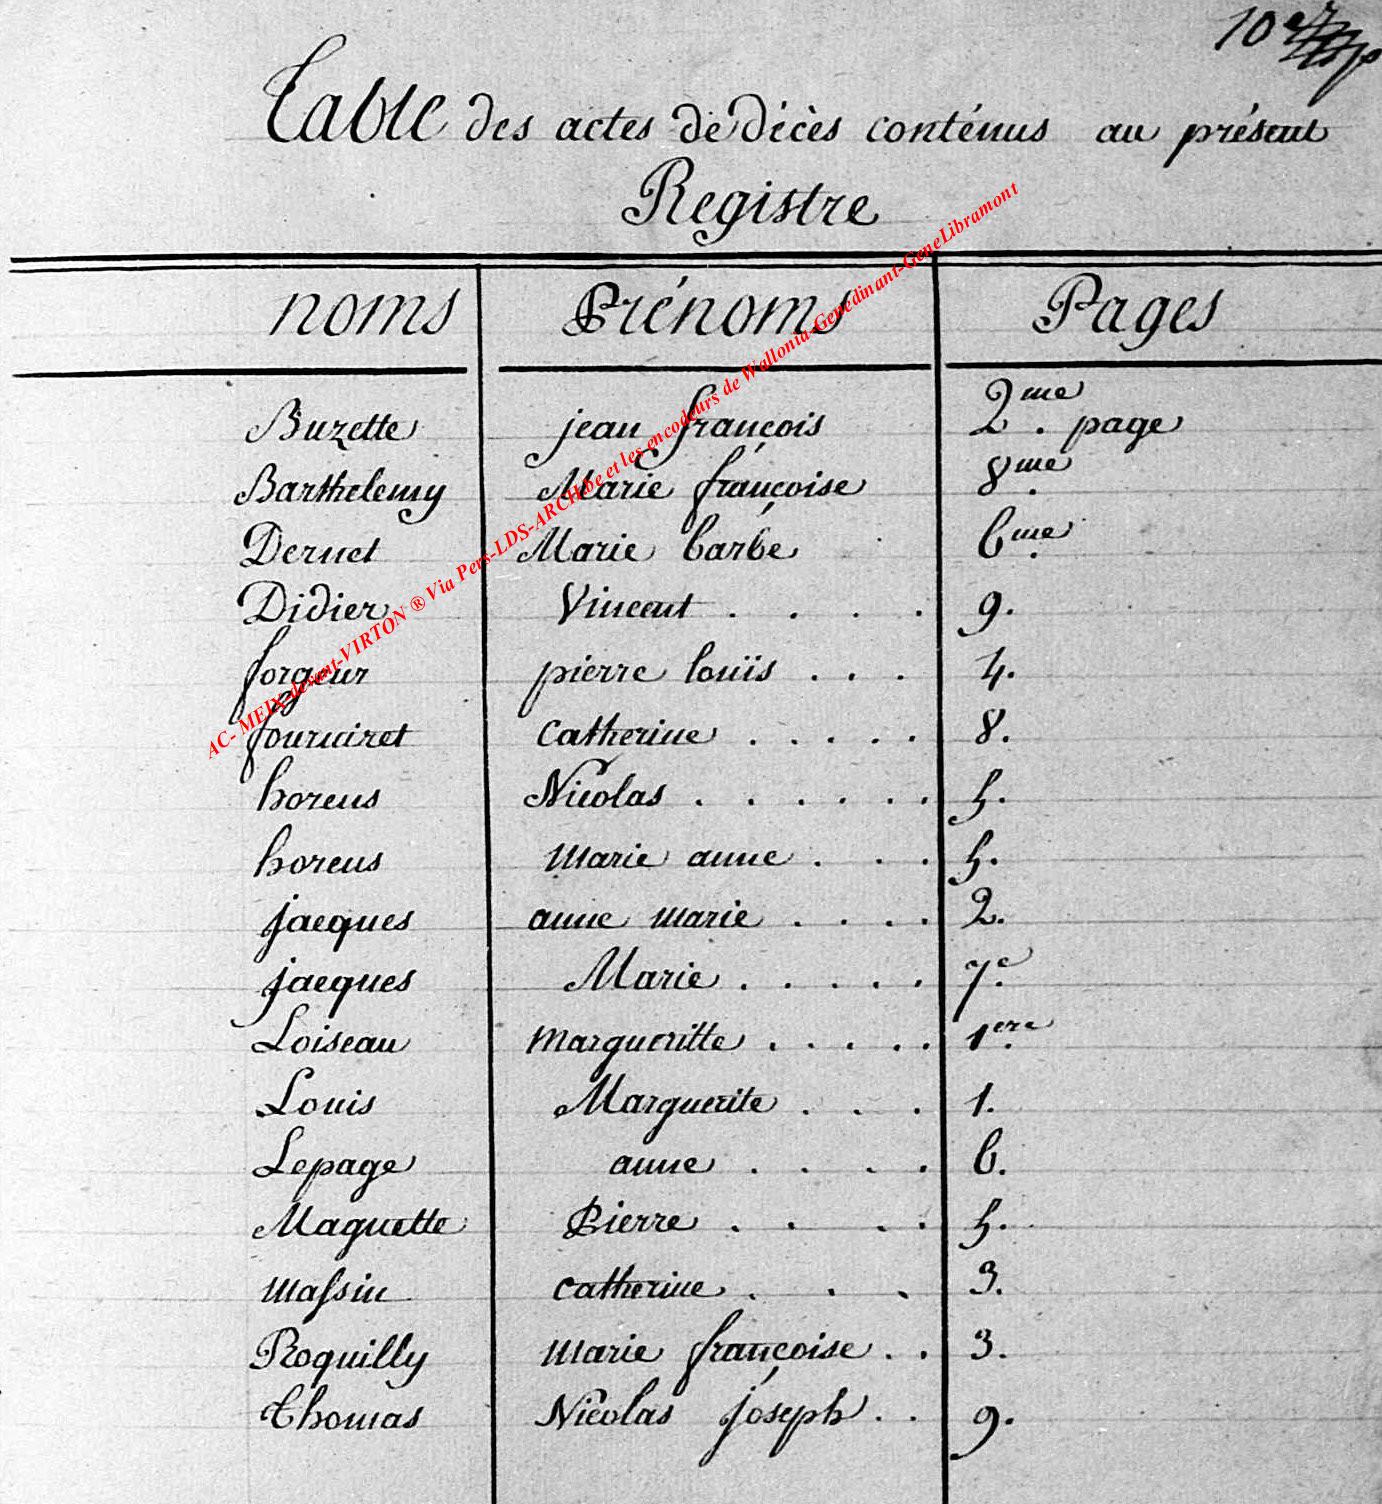 10e
Table des actes de décès conténus au présent
Registre
noms Prénoms Pages
Buzette jean françois 2me. page
Barthelemy Marie françoise 8me.
Dernet Marie barbe 6me.
Didier Vincent . . . . 9.
forgeur pierre louïs . . . 4.
fourniret Catherine . . . . . 8.
horens Nicolas . . . . . . 5.
horens Marie anne . . . 5.
jacques anne marie . . . . 2.
jacques Marie . . . . . 7e.
Loiseau Margueritte . . . . . 1ere.
Louis Marguerite . . . 1.
Lepage anne . . . . 6.
Maguette Pierre . . . . 5.
massin catherine . . . 3.
Roquilly marie françoise . . 3.
Thomas Nicolas joseph . . 9.
AC- MEIX-devant-VIRTON ® Via Pers-LDS-ARCH.be et les encodeurs de Wallonia-Genedinant-GeneLibramont